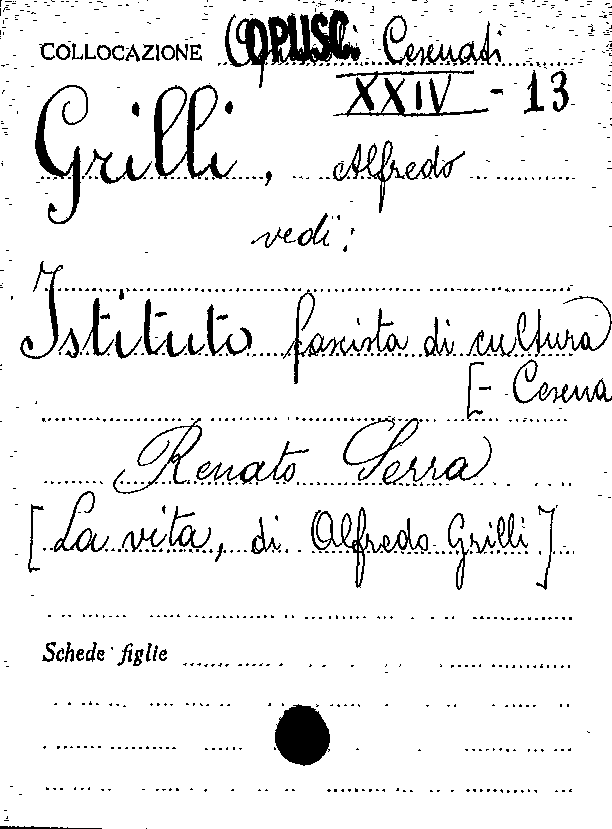 COLLOCAZIONE OPUSC. Cesenati
XXIV - 13
Grilli, Alfredo
vedi:
Istituto fascista di cultura
[- Cesena
Renato Serra
[La vita, di Alfredo Grilli]
Schede figlie